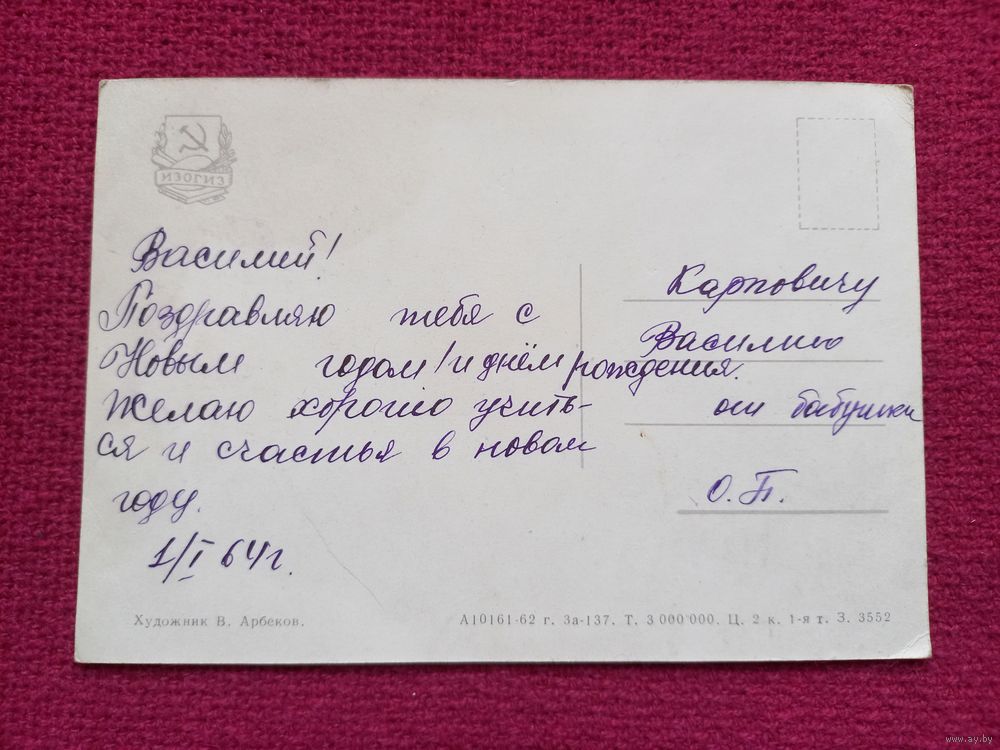 ИЗОГИЗ
Василий!
Поздравляю тебя с
Новым годом! и днём рождения.
Желаю хорошо учить-
ся и счастья в новом
году.
1/I 64 г.
Карповичу
Василию
от бабушки
О.П.
Художник В. Арбеков.
А10161-62 г. За-137. Т. 3 000 000. Ц. 2 к. 1-я т. З. 3552
www.ay.by